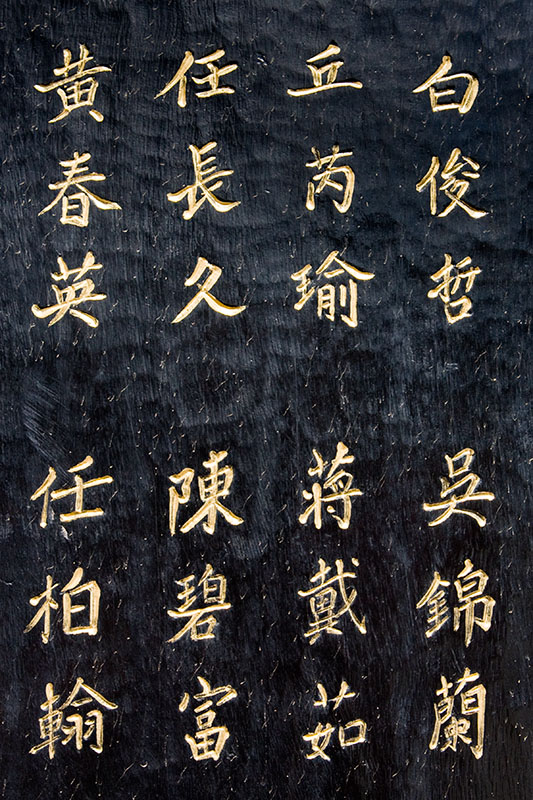 白俊哲
吳錦蘭
丘芮瑜
蔣戴茹
任長久
陳碧富
黃春英
任柏翰